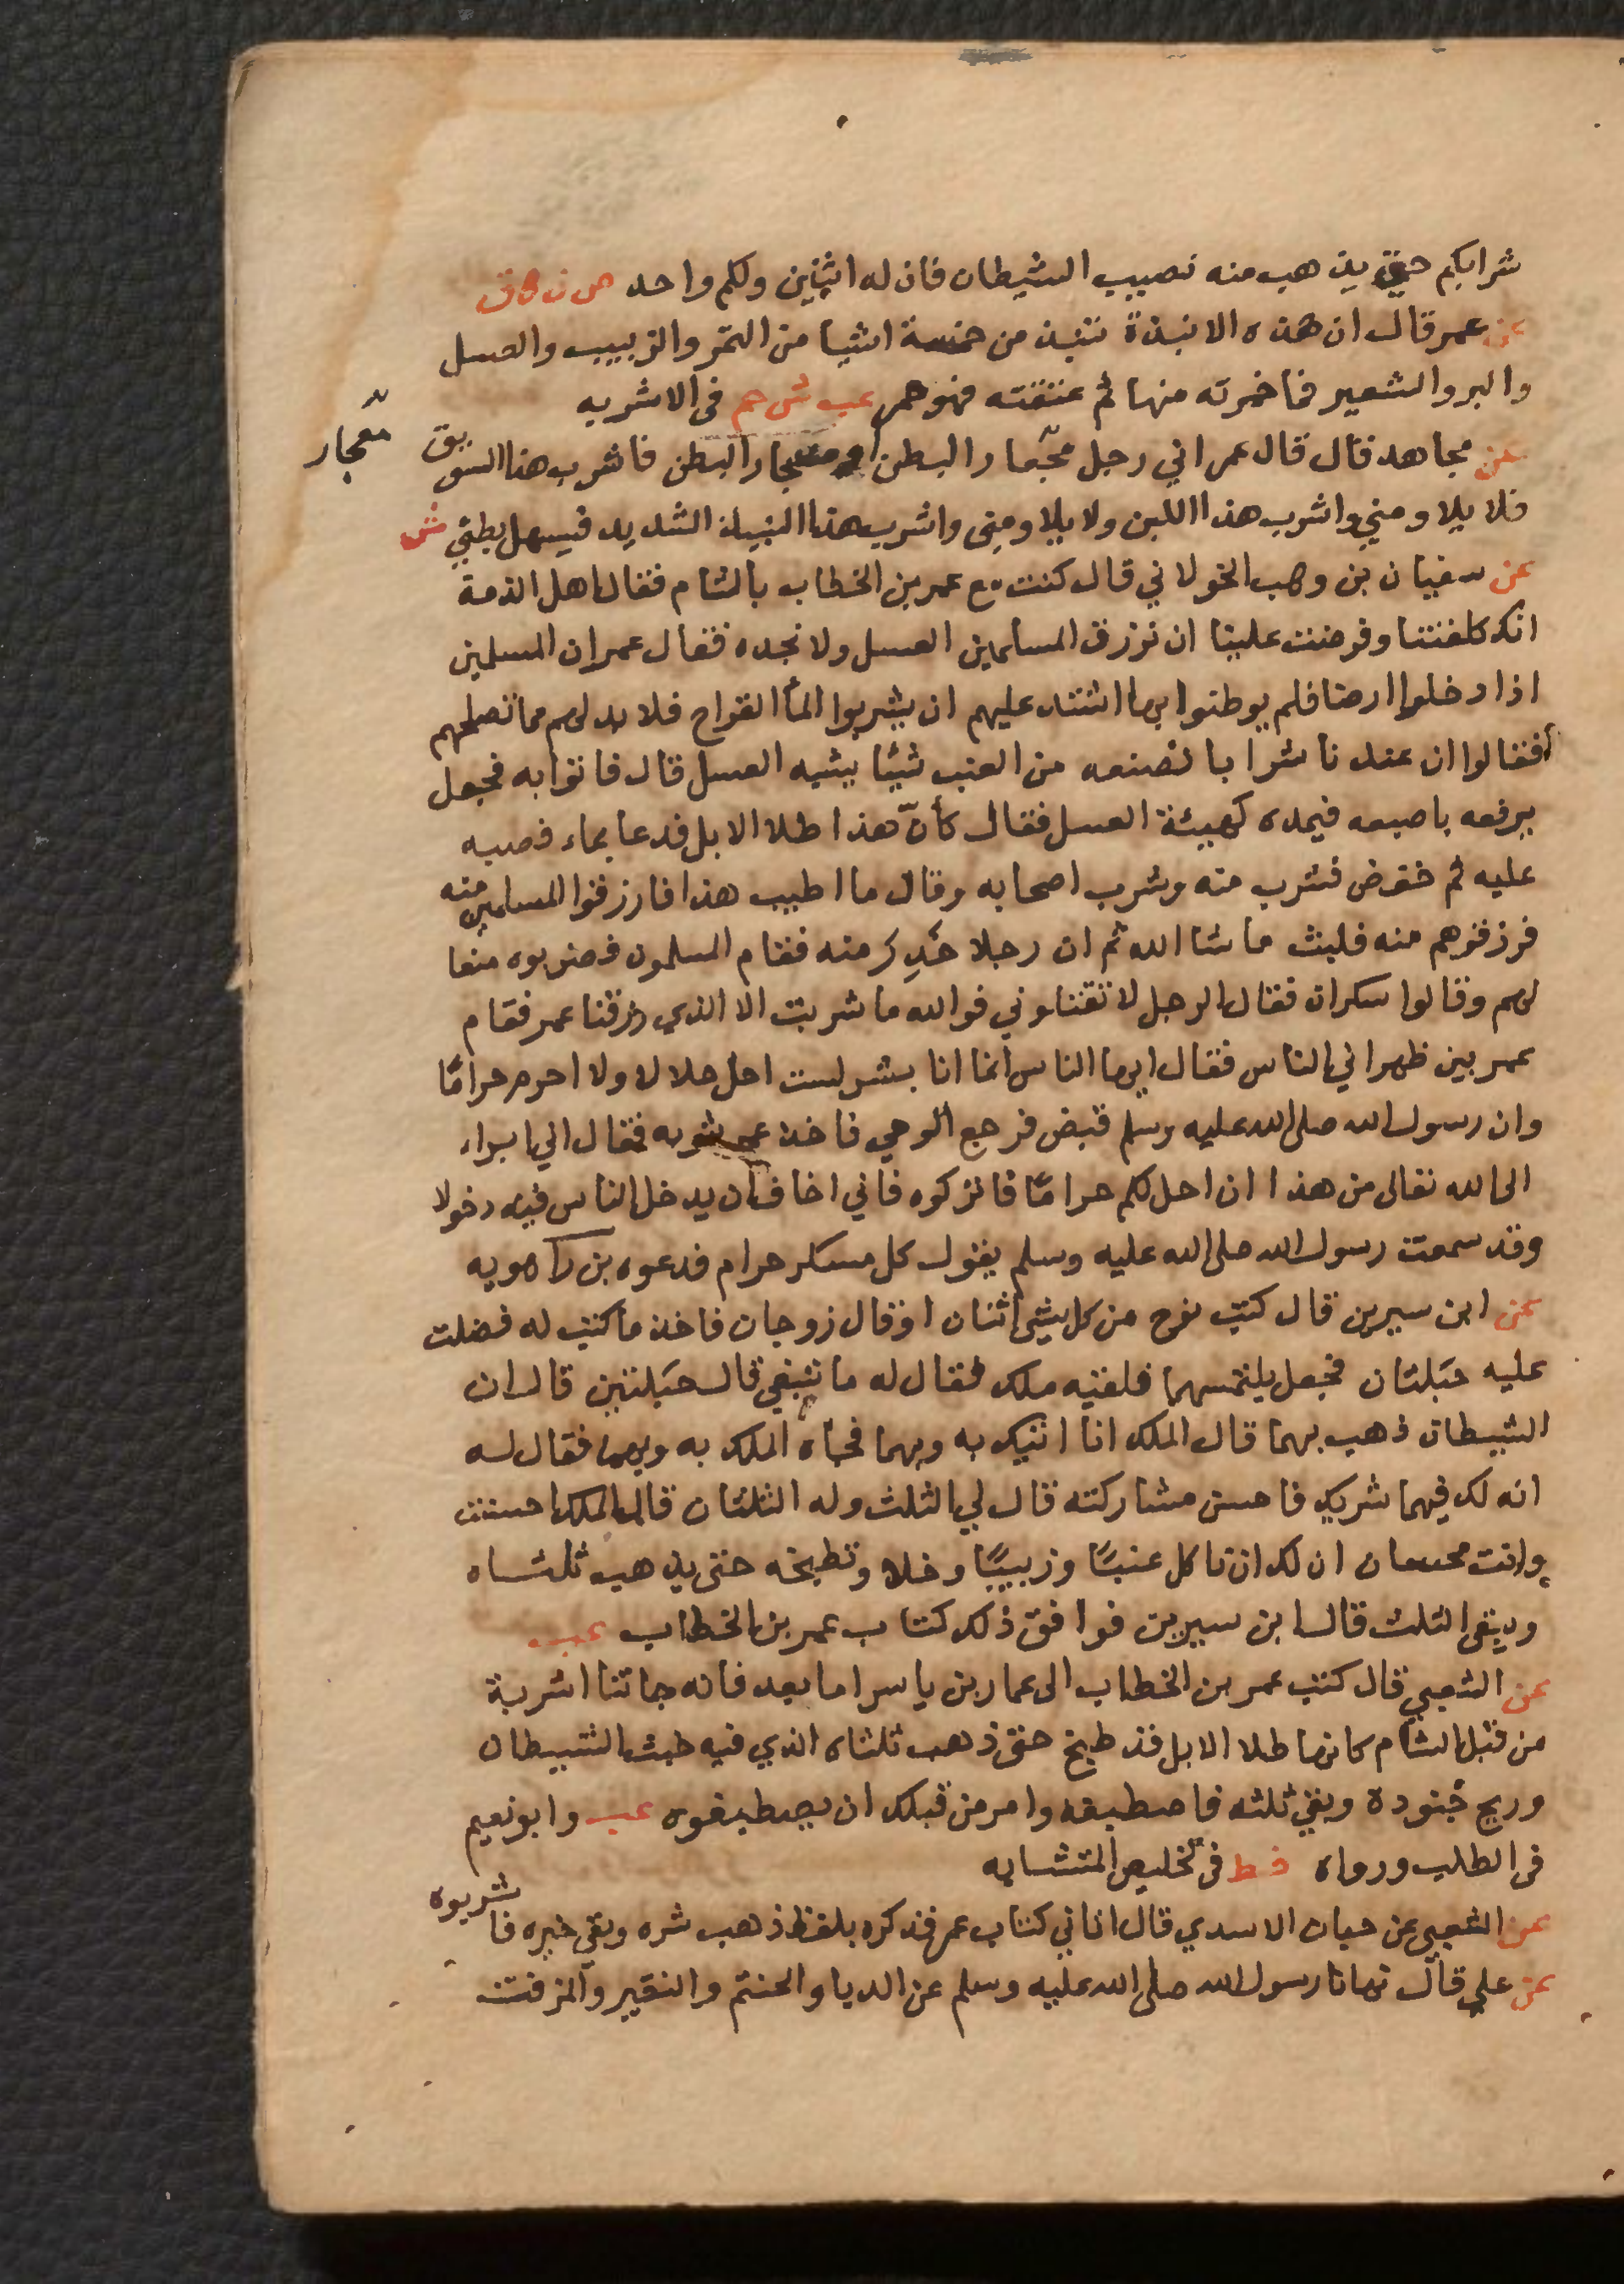 شرابكم حتى يذهب منه نصيب الشيطان فان له اثنين ولكم واحد ص ن ق
عن عمر قال ان هذه الانبذة تنبذ من خمسة اشيا من التمر والزبيب والعسل
والبر والشعير فما خمرته منها ثم عتقته فهو خمر عب ش حم فى الاشربه
عن مجاهد قال قال عمر اني رجل معجار البطن او مسجار البطن فاشرب هذا السويق
معجار
فلا يلاومني واشرب هذا اللبن ولا يلاومني واشرب هذا النبيذ الشديد فيسهل بطني ش
عن سفيان بن وهب الخولاني قال كنت مع عمر بن الخطاب بالشام فقال اهل الذمة
انك كلفتنا وفرضت علينا ان نرزق المسلمين العسل ولا نجده فقال عمر ان المسلمين
اذا دخلوا ارضا فلم يوطنوا بها اشتد عليهم ان يشربوا الماٴ القراح فلا بد لهم مما تصلحهم
فقالوا ان عندنا شرابا نصنعه من العنب شيئا يشبه العسل قال فاتوا به فجعل
يرفعه باصبعه فيمده كهيئة العسل فقال كأنّ هذا طلا الابل فدعا بماء فصبه
عليه ثم خفض فشرب منه وشرب اصحابه وقال ما اطيب هذا فارزقوا المسلمين منه
فرزقوهم منه فلبث ما شا الله ثم ان رجلا خدر منه فقام المسلمون فضربوه بنعا
لهم وقالوا سكران فقال الرجل لا تقتلوني فوالله ما شربت الا الذي رزقنا عمر فقام
عمر بين ظهراني الناس فقال ايها الناس انما انا بشر لست احل حلالا ولا احرم حرامًا
وان رسول الله صلى الله عليه وسلم قبض فرجع الوحي فاخذ عمر بثوبه فقال اني ابراء
الى الله تعالى من هذا ان احل لكم حرامًا فاتركوه فاني اخاف ان يدخل الناس فيه دخولا
وقد سمعت رسول الله صلى الله عليه وسلم يقول كل مسكر حرام فدعوه بن راهويه
عن ابن سيرين قال كتب نوح من كل شي اثنان او قال زوجان فاخذ ما كتب له فضلت
عليه حبلتان فجعل يلتمسهما فلقيه ملك فقال له ما تبغي قال حبلتين قال ان
الشيطان ذهب بهما قال الملك انا اتيك به وبهما فجاه الملك به وبهما فقال له
انه لك فيهما شريك فاحسن مشاركته قال لي الثلث وله الثلثان قال الملك احسنت
وانت محسان ان لك ان تاكل عنبًا وزبيبًا وخلا وتطبخه حتى يذهب ثلثاه
ويبقى الثلث قال ابن سيرين فوافق ذلك كتاب عمر بن الخطاب عب
عن الشعبي قال كتب عمر بن الخطاب الى عمار بن ياسر اما بعد فانه جاتنا اشربة
من قبل الشام كانها طلا الابل قد طبخ حتى ذهب ثلثاه الذي فيه خبث الشيطان
وريح جنوده وبقي ثلثه فاصطبغه وامر من قبلك ان يصطبغوه عب وابو نعيم
فى الطب ورواه خط فى تلخيص المتشابه
عن الشعبي عن حيان الاسدي قال اتاني كتاب عمر فذكره بلفظ ذهب شره وبقي خيره فاشربوه
عن علي قال نهانا رسول الله صلى الله عليه وسلم عن الدبا والحنتم والنقير والمزفت